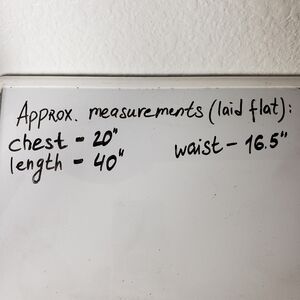 Approx. measurements (laid flat):
chest - 20"
length - 40"
waist - 16.5"